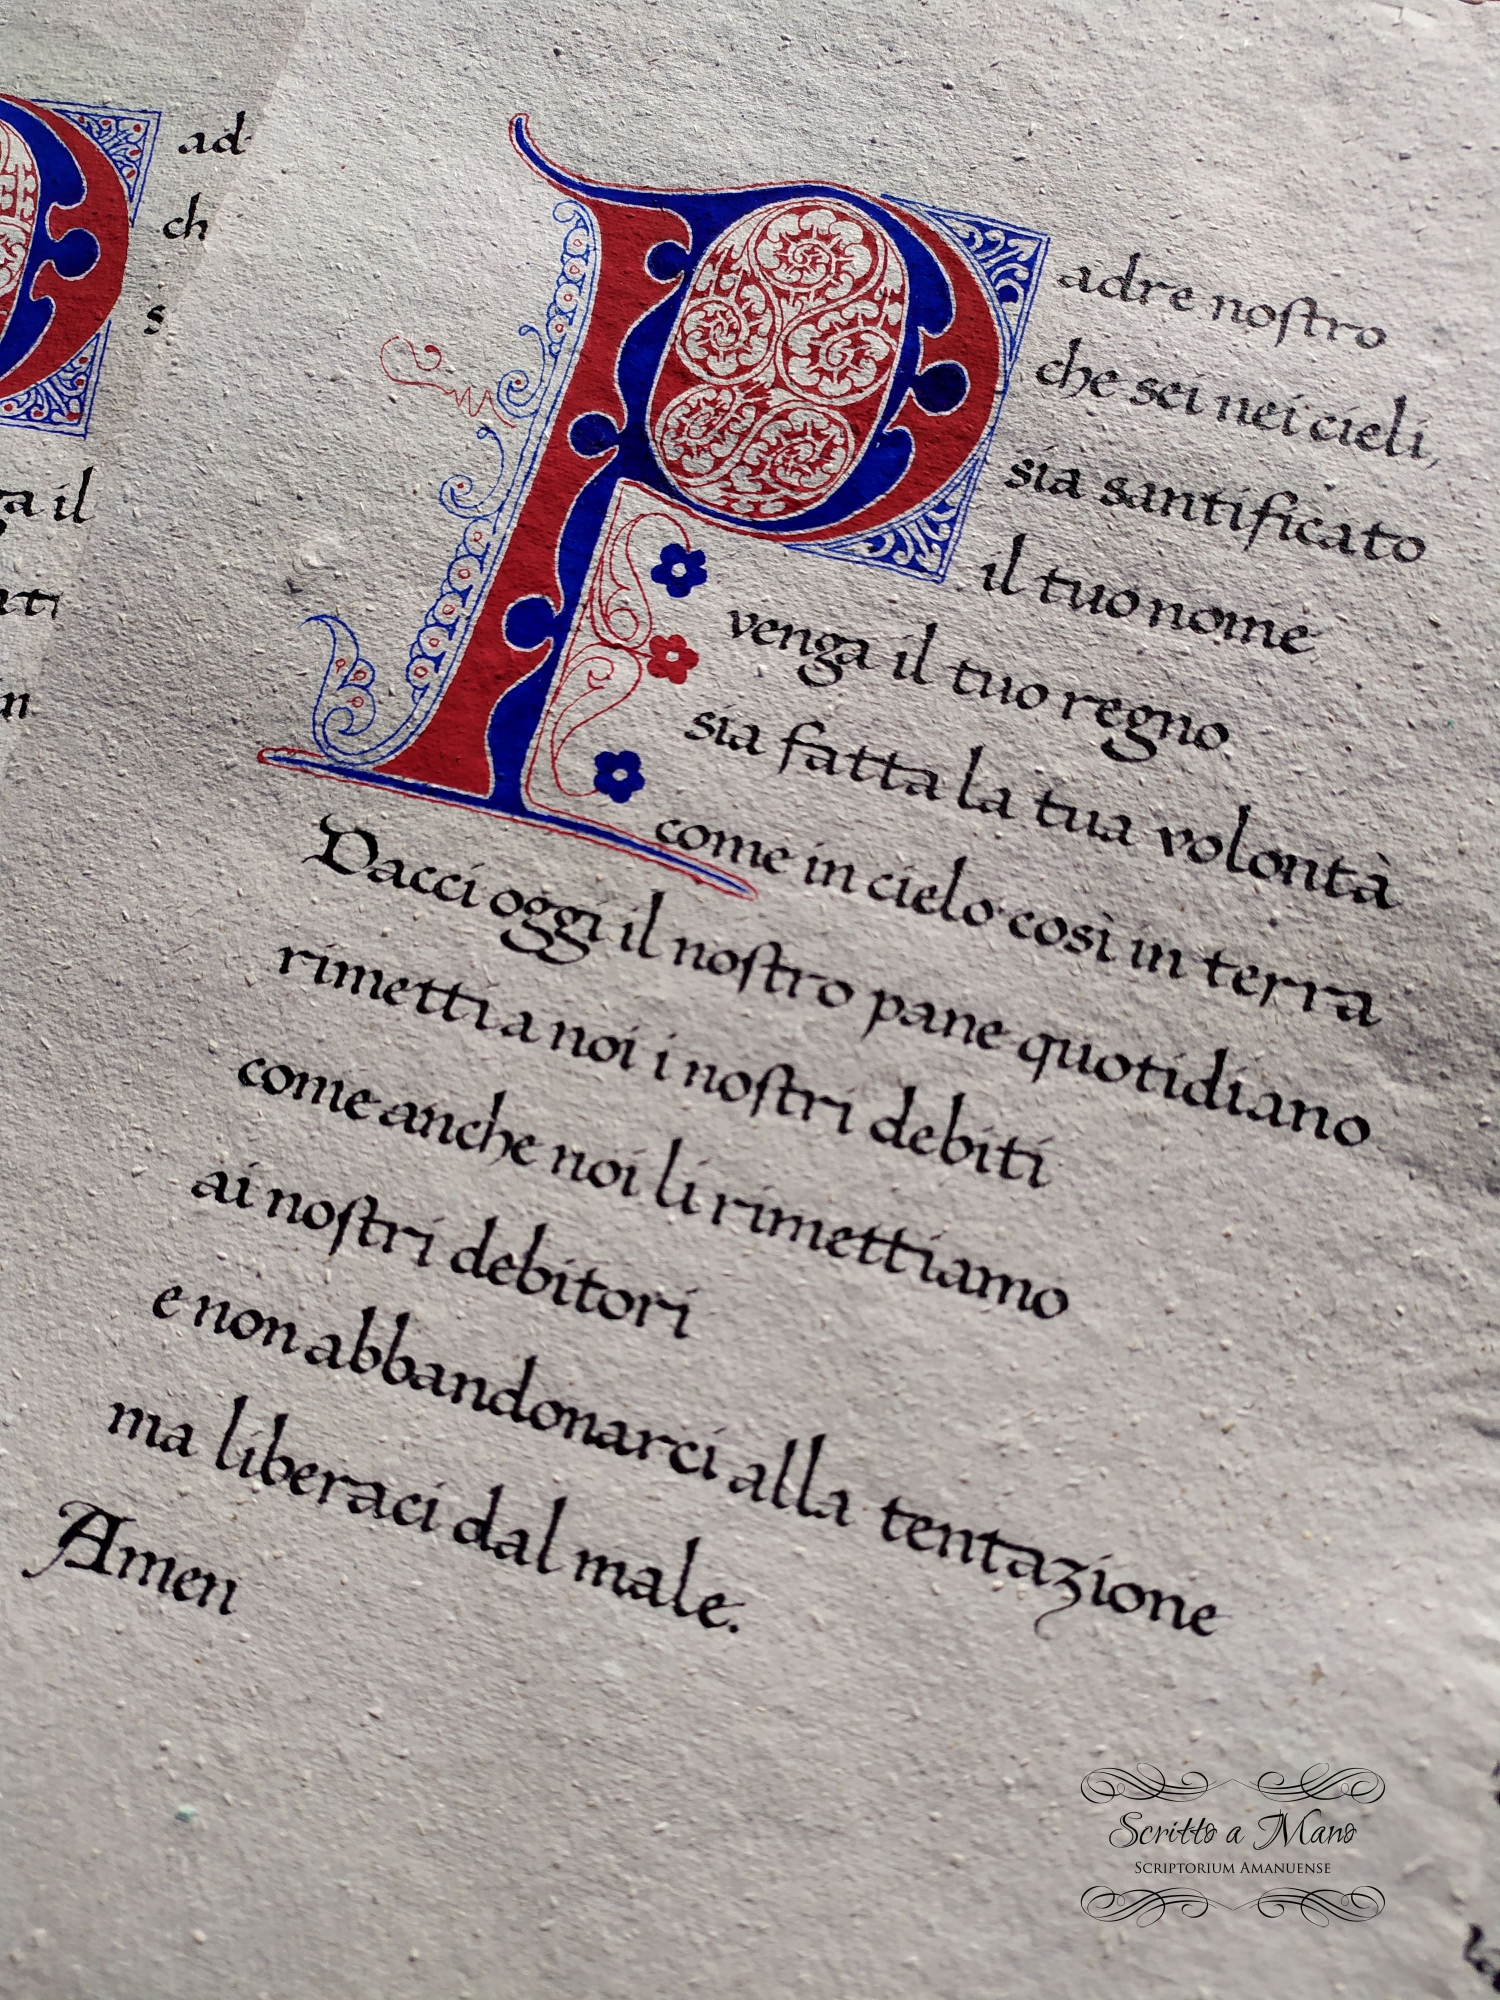 Padre nostro
che sei nei cieli,
sia santificato
il tuo nome
venga il tuo regno
sia fatta la tua volontà
come in cielo così in terra
Dacci oggi il nostro pane quotidiano
rimetti a noi i nostri debiti
come anche noi li rimettiamo
ai nostri debitori
e non abbandonarci alla tentazione
ma liberaci dal male.
Amen
ad
ch
s
a il
ti
in
Scritto a Mano
Scriptorium Amanuense